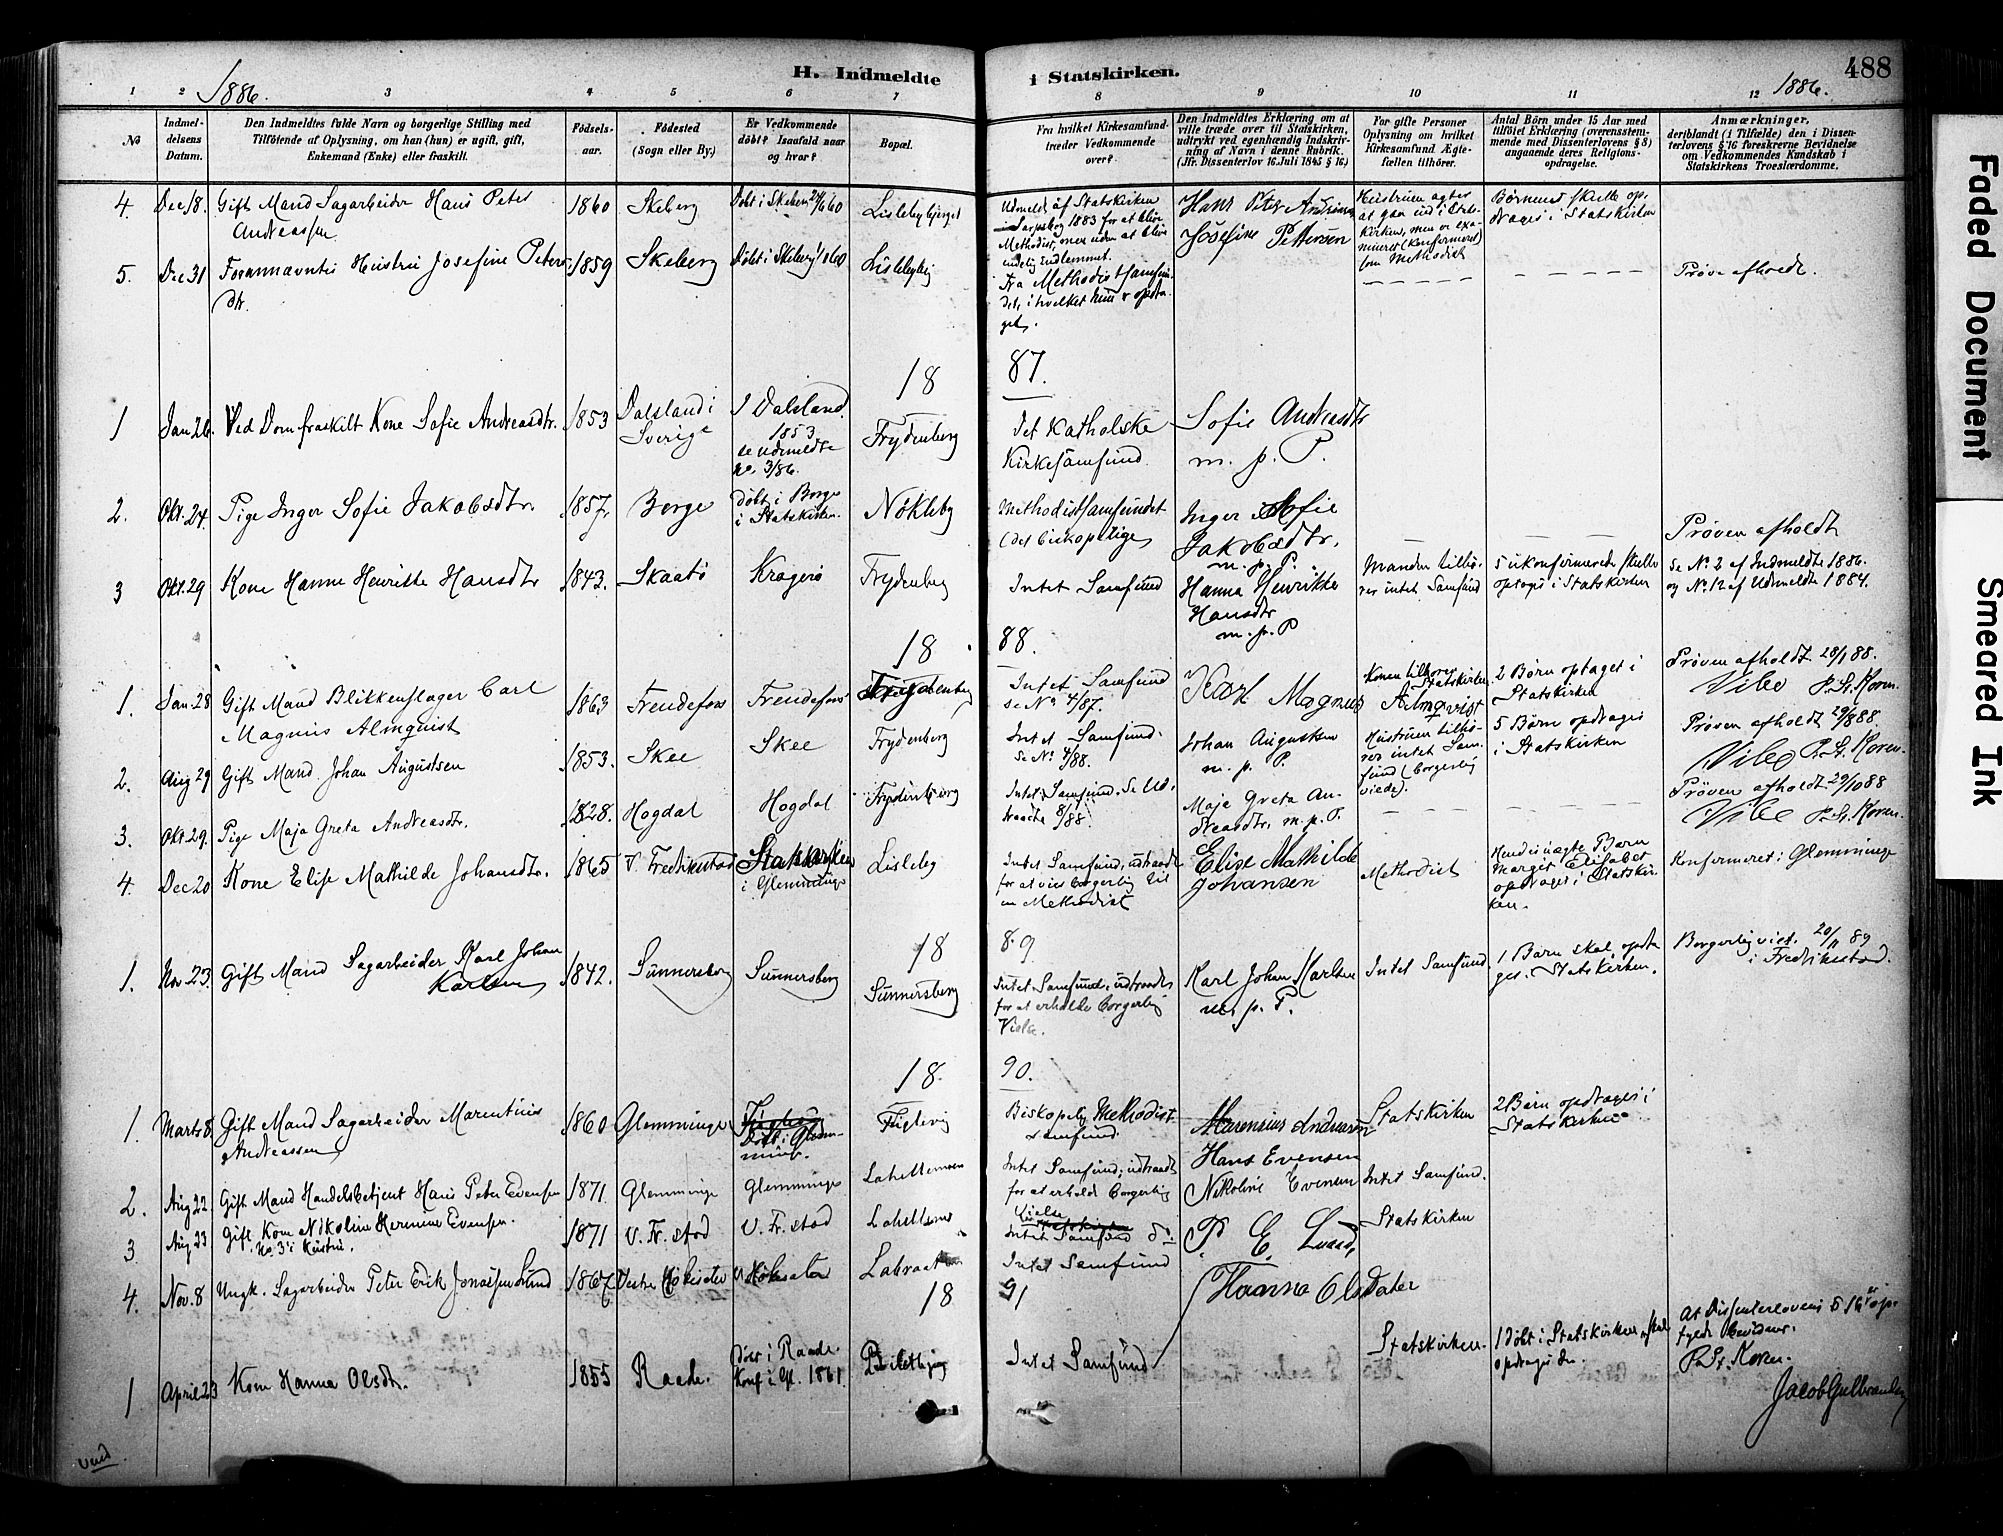 H. Indmeldte i Statskirken.
488
1886.
1886.
1 2 3 4 5 6 7 8 9 10 11 12
No
Indmel-
delsens
Datum.
Den Indmeldtes fulde Navn og borgerlige Stilling med
Tilföiende af Oplysning, om han (hun) er ugift, gift,
Enkemand (Enke) eller fraskilt.
Födsels-
aar.
Födested
(Sogn eller By.)
Er Vedkommende
döbt? Isaafald naar
og hvor?
Bopæl.
Fra hvilket Kirkesamfund
træder Vedkommende
over?
Den Indmeldtes Erklæring om at
ville træde over til Statskirken,
udtrykt ved egenhændig Indskriv-
ning af Navn i denne Rubrik.
(Jfr. Dissenterlov 16. Juli 1845 § 16.)
For gifte Personer
Oplysning om hvilket
Kirkesamfund Ægte-
fællen tilhörer.
Antal Börn under 15 Aar med
tilföiet Erklæring (overensstem-
mende med Dissenterlovens § 8)
angaaende deres Religions-
opdragelse.
Anmærkninger,
deriblandt (i Tilfælde) den i Dissen-
terlovens § 16 foreskrevne Bevidnelse
om Vedkommendes Kundskab i
Statskirkens Troeslærdomme.
4. Dec 18. Gift Mand Sagarbeider Hans Peter
Andreassen
1860 Skeberg
Döbt i Skeberg
Udmeldt af Statskirken
Sarpsborg 1883 for at blive
Methodist, men uden at blive
endelig indlemmet.
Hans Peter Andreasen
Hustruen agter
at gaa ud i Stats-
kirken, men er
(konfirmeret)
som Methodist
Börnene skulle op-
drages i Statskirken
5. Dec 31 Forannævntes Hustru Josefine Peters-
dtr.
1859 Skeberg
Josefine Pettersen
Fra Methodistsamfun-
det, i hvilket hun er opta-
get.
Pröve afholdt.
18 87.
1 Jan 26. Ved Dom fraskilt Kone Sofie Andreasdtr. 1853
Dalsland i
Sverige
I Dalsland
1853
se udmeldte
No. 3/86.
Frydenberg
Det Katholske
Kirkesamfund
Sofie Andreasdtr
m. p. P.
2. Okt. 24. Pige Inger Sofie Jakobsdtr. 1857 Borge
döbt i Borge
i Statskirken.
Nökleby
Methodistsamfundet
(det biskopelige)
Inger Sofie
Jakobsdtr.
m. p. P.
Pröven afholdt
3 Okt. 29 Kone Hanne Henritte Hansdtr 1843. Skaatö Kragerö Frydenberg
Intet Samfund
Hanna Henrikke
Hansdtr
m. p. P
Manden tilhö-
rer intet Samfund
5 ukonfirmerede skulle
optages i Statskirken
Se No. 2 af Indmeldte 1886.
og No. 12 af Udmeldte 1884.
18 88.
1. Jan. 28 Gift Mand Blikkenslager Carl
Magnus Almquist
1863 Frendefors Frendefors Frydenberg
Intet Samfund
se No. 4/87.
Karl Magnus Almqvist
Konen tilhörer
Statskirken
2 Börn optaget i
Statskirken
Pröven afholdt 28/1 88.
Vibe P. St. Koren.
2. Aug 29 Gift Mand Johan Augustsen 1853. Skee Skee Frydenberg
Intet Samfund.
Se No. 4/88.
Johan Augustsen
m. p. P.
Hustruen tilhö-
rer intet Sam-
fund (borgerlig
viede).
5 Börn opdrages
i Statskirken
Pröven afholdt 29/8 88.
Vibe P. St. Koren.
3. Okt. 29. Pige Maja Greta Andreasdtr. 1828. Hogdal Hogdal Frydenberg
Intet Samfund. Se Ud-
traadte 8/88.
Maja Greta An-
dreasdtr. m. p. P.
Pröven afholdt 29/10 88
Vibe P. St. Koren.
4. Dec 20 Kone Elise Mathilde Johansdtr. 1865 V. Fredrikstad
Statskirken
i Glemminge
Lisleby
Intet Samfund, udtraadt
for at vies borgerlig til
en Methodist
Elise Mathilde
Johansen
Methodist
Hendes uægte Barn
Margit Elisabet
opdrages i Statskir-
ken.
Konfirmeret i Glemminge
18 89
1. Nov 23. Gift Mand Sagarbeider Karl Johan
Karlsen
1842. Sunnersberg Sunnersberg Sunnersberg
Intet Samfund, udtraadt
for at erholde borgerlig
Vielse.
Karl Johan Karlsen
m. p. P.
Intet Samfund
1 Barn skal opdra-
ges i Statskirken.
Borgerlig viet. 20/11 89
i Fredrikstad.
18 90.
1. Marts 8 Gift Mand Sagarbeider Marentius
Andreassen
1860 Glemminge
Döbt i Glem-
minge.
Fuglevig
Biskopelig Methodist
samfund.
Marensius Andreasen
Statskirken
2 Börn opdrages i
Statskirken
2. Aug 22 Gift Mand Handelsbetjent Hans Peter Evensen 1871. Glemminge Glemminge
Intet Samfund; udtraadt
for at erholde borgerlig
Vielse
Hans Evensen
Intet Samfund.
3 Aug 23 Gift Kone Nikoline Hermine Evensen. 1871 V. Fr. stad V. Fr. stad
Intet Samfund do
Nikoline Evensen
Statskirken
4. Nov. 8 Ungk. Sagarbeider Peter Erik Jonassen Lund 1867
Intet Samfund
P. E. Lund
18 91
1 April 23 Kone Hanna Olsdtr. 1855 Raade.
döbt i Raade.
Konf i Gl. 1861.
Intet Samfund
Hanna Olsdater
Statskirken.
1 döbt i Statskirken, skal
opdrages der.
At Dissenterlovens § 16 er op-
fyldt bevidnes.
P. St. Koren.
Jacob Gulbrandsen
Vend
Faded Document
Smeared Ink